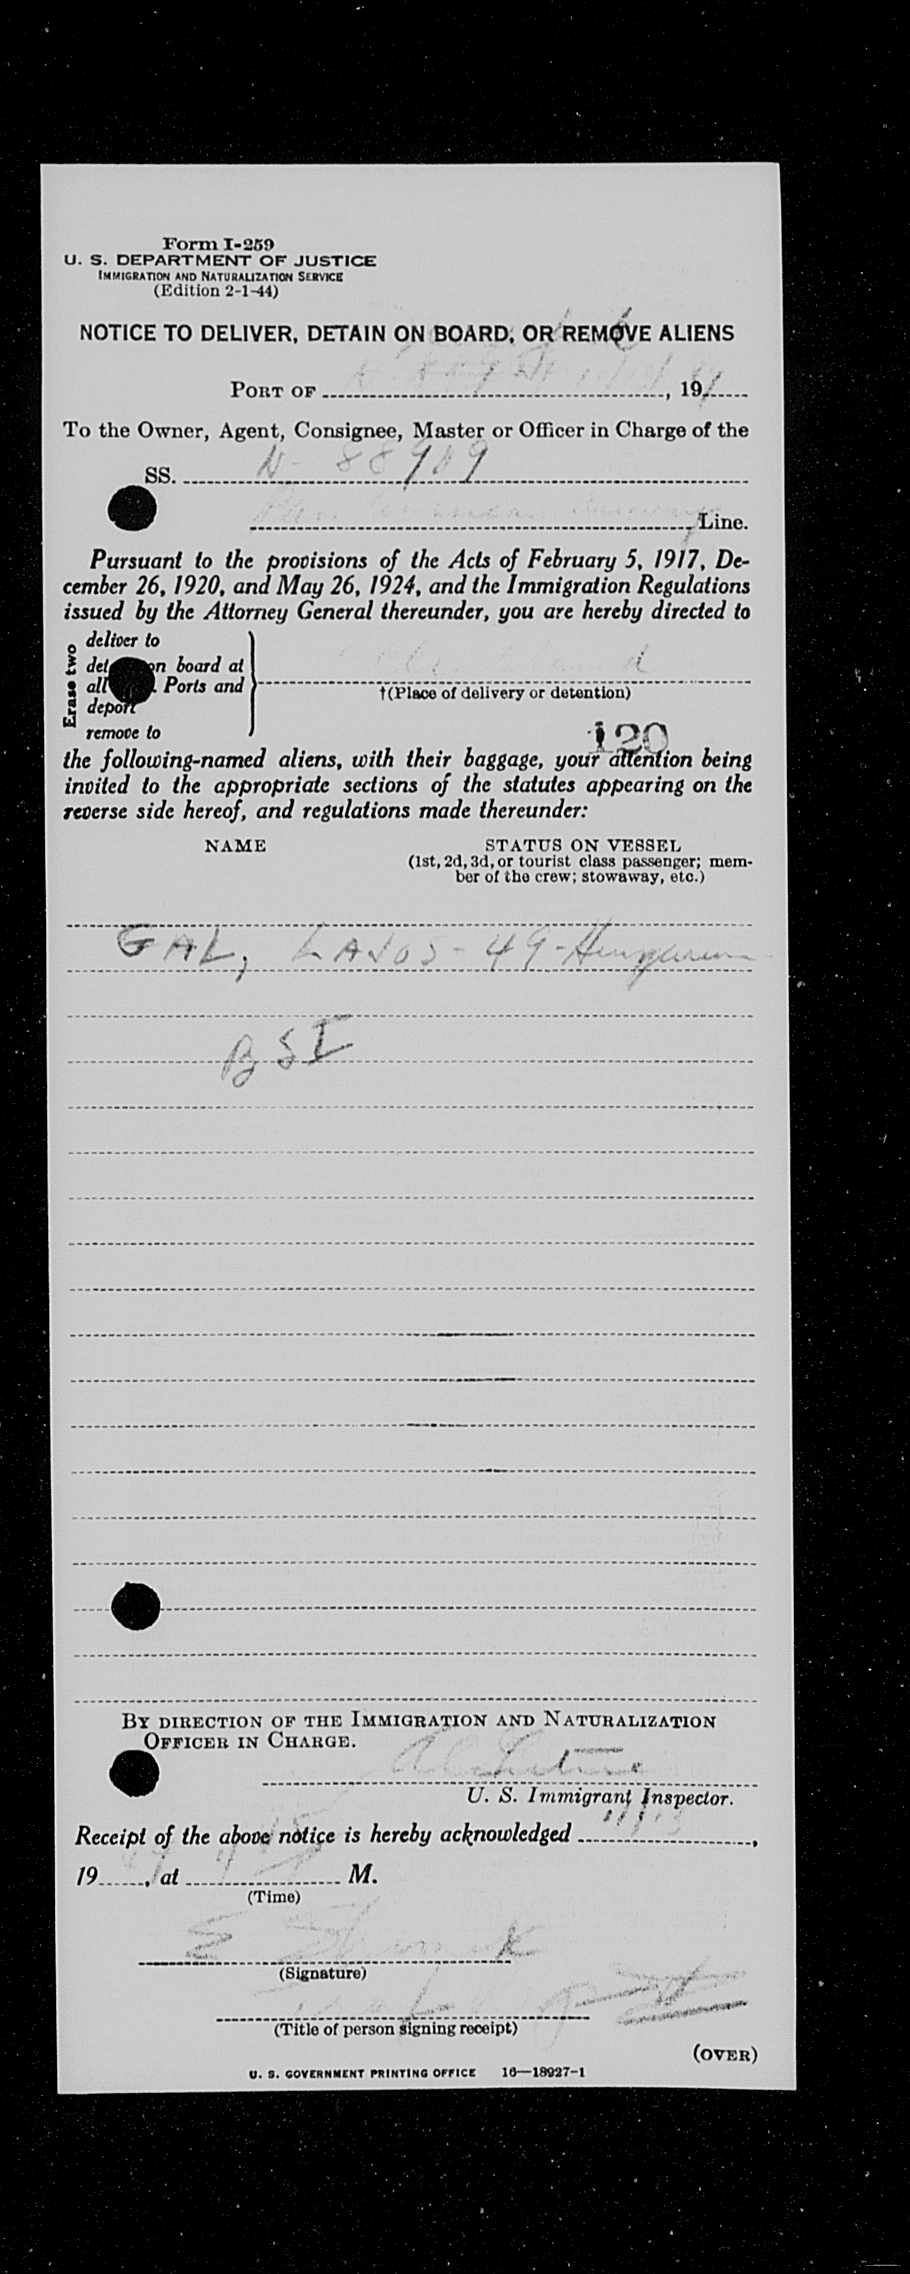 Form I-259
U. S. DEPARTMENT OF JUSTICE
IMMIGRATION AND NATURALIZATION SERVICE
(Edition 2-1-44)
NOTICE TO DELIVER, DETAIN ON BOARD, OR REMOVE ALIENS
PORT OF , 19
To the Owner, Agent, Consignee, Master or Officer in Charge of the
SS. N- 88909
Line.
Pursuant to the provisions of the Acts of February 5, 1917, De-
cember 26, 1920, and May 26, 1924, and the Immigration Regulations
issued by the Attorney General thereunder, you are hereby directed to
Erase two
deliver to
on board at
all Ports and
deport
remove to
†(Place of delivery or detention)
120
the following-named aliens, with their baggage, your attention being
invited to the appropriate sections of the statutes appearing on the
reverse side hereof, and regulations made thereunder:
NAME STATUS ON VESSEL
(1st, 2d, 3d, or tourist class passenger; mem-
ber of the crew; stowaway, etc.)
GAL, LAJOS - 49 - Hungarian
BSI
BY DIRECTION OF THE IMMIGRATION AND NATURALIZATION
OFFICER IN CHARGE.
U. S. Immigrant Inspector.
Receipt of the above notice is hereby acknowledged ,
19 , at M.
(Time)
(Signature)
(Title of person signing receipt)
(OVER)
U. S. GOVERNMENT PRINTING OFFICE 16—18927-1